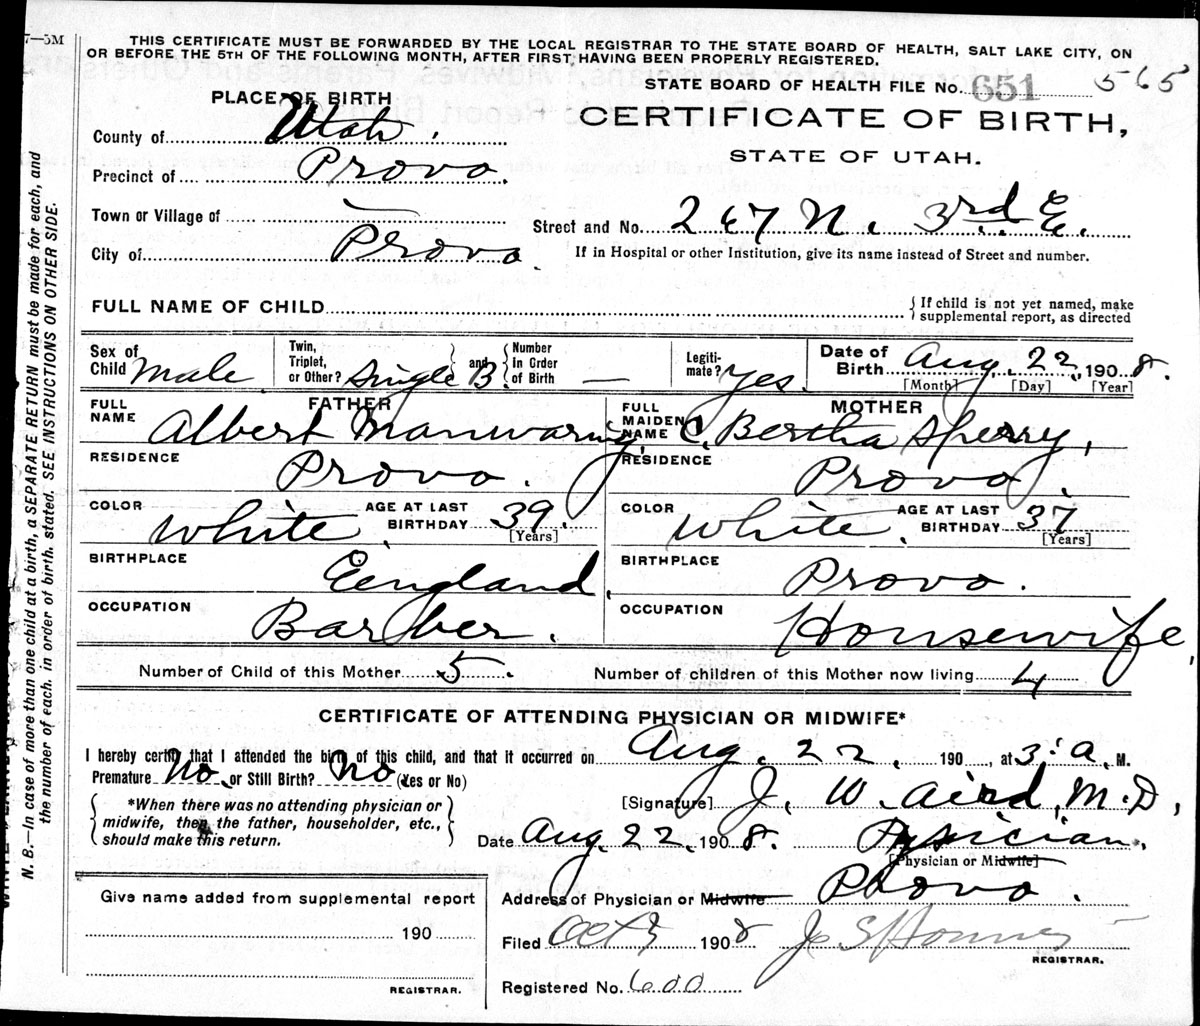 7—5M
THIS CERTIFICATE MUST BE FORWARDED BY THE LOCAL REGISTRAR TO THE STATE BOARD OF HEALTH, SALT LAKE CITY, ON
OR BEFORE THE 5TH OF THE FOLLOWING MONTH, AFTER FIRST HAVING BEEN PROPERLY REGISTERED.
STATE BOARD OF HEALTH FILE No. 651 565
PLACE OF BIRTH
CERTIFICATE OF BIRTH,
STATE OF UTAH.
County of Utah.
Precinct of Provo.
Town or Village of —
City of Provo.
Street and No. 267 N. 3rd E.
If in Hospital or other Institution, give its name instead of Street and number.
FULL NAME OF CHILD
{ If child is not yet named, make
supplemental report, as directed
Sex of Child Male
Twin, Triplet, or Other? Single } and B { Number In Order of Birth —
Legitimate? Yes.
Date of Birth Aug. 22, 1908.
[Month] [Day] [Year]
FATHER
FULL NAME Albert Manwaring,
RESIDENCE Provo.
COLOR White. AGE AT LAST BIRTHDAY 39. [Years]
BIRTHPLACE Eengland.
OCCUPATION Barber.
MOTHER
FULL MAIDEN NAME C. Bertha Sperry,
RESIDENCE Provo.
COLOR White. AGE AT LAST BIRTHDAY 37 [Years]
BIRTHPLACE Provo.
OCCUPATION Housewife,
Number of Child of this Mother 5.
Number of children of this Mother now living 4
CERTIFICATE OF ATTENDING PHYSICIAN OR MIDWIFE*
I hereby certify that I attended the birth of this child, and that it occurred on Aug. 22, 190 , at 3: a. M.
Premature No. or Still Birth? No (Yes or No)
{ *When there was no attending physician or
midwife, then the father, householder, etc.,
should make this return. }
[Signature] J. W. Aird, M.D.,
Date Aug. 22, 1908. Pysician.
[Physician or Midwife]
Address of Physician or Midwife Provo.
Give name added from supplemental report
190
REGISTRAR.
Filed Oct 3 1908
REGISTRAR.
Registered No. 600
N. B.—In case of more than one child at a birth, a SEPARATE RETURN must be made for each, and
the number of each, in order of birth, stated. SEE INSTRUCTIONS ON OTHER SIDE.